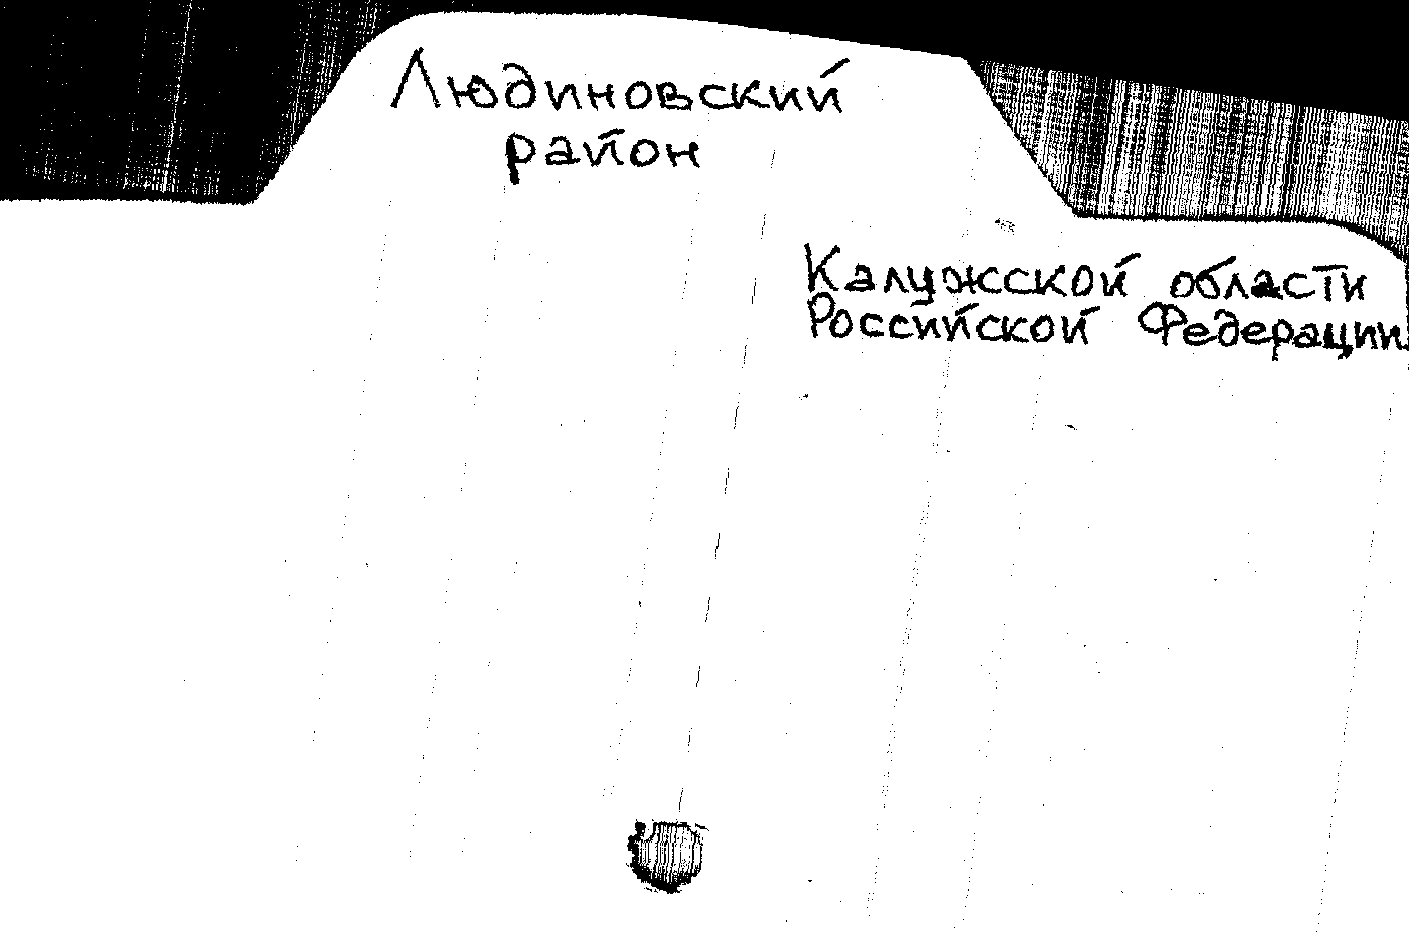 Людиновский
район
Калужской области
Российской Федерации